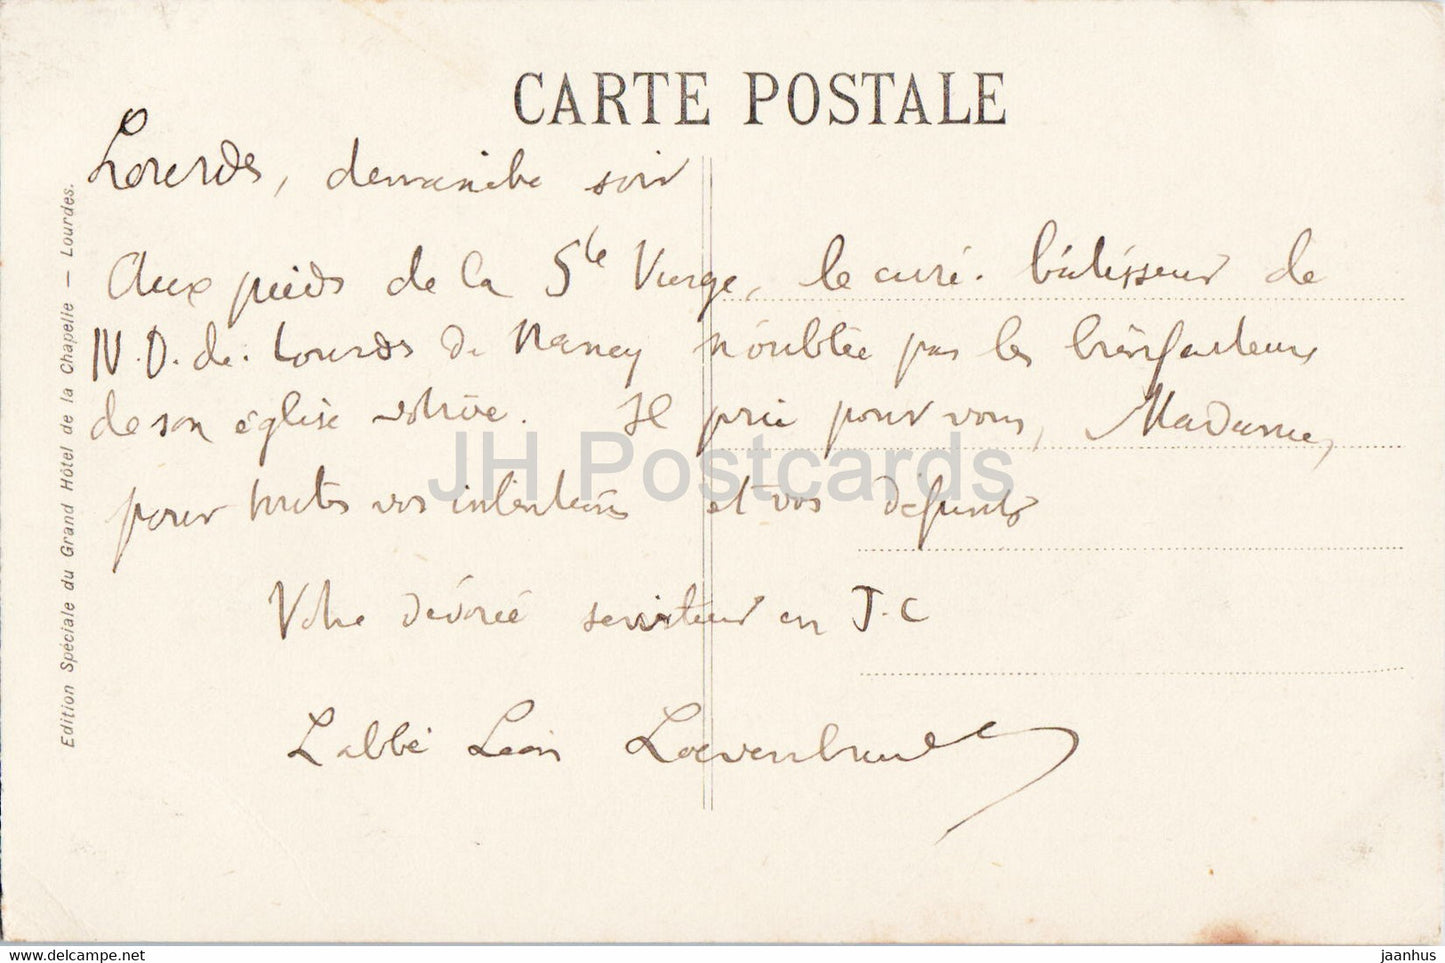 CARTE POSTALE
Lourdes, dimanche soir
Aux pieds de la Ste Vierge, le curé bâtisseur de
N.D. de Lourdes de Nancy n'oublie pas les bienfaiteurs
de son église votive. Il prie pour vous, Madame,
pour toutes vos intentions et vos défunts
Votre dévoué serviteur en J-C
L'abbé Léon
Edition Spéciale du Grand Hôtel de la Chapelle — Lourdes.
JH Postcards
https://www.delcampe.net
jaanhus